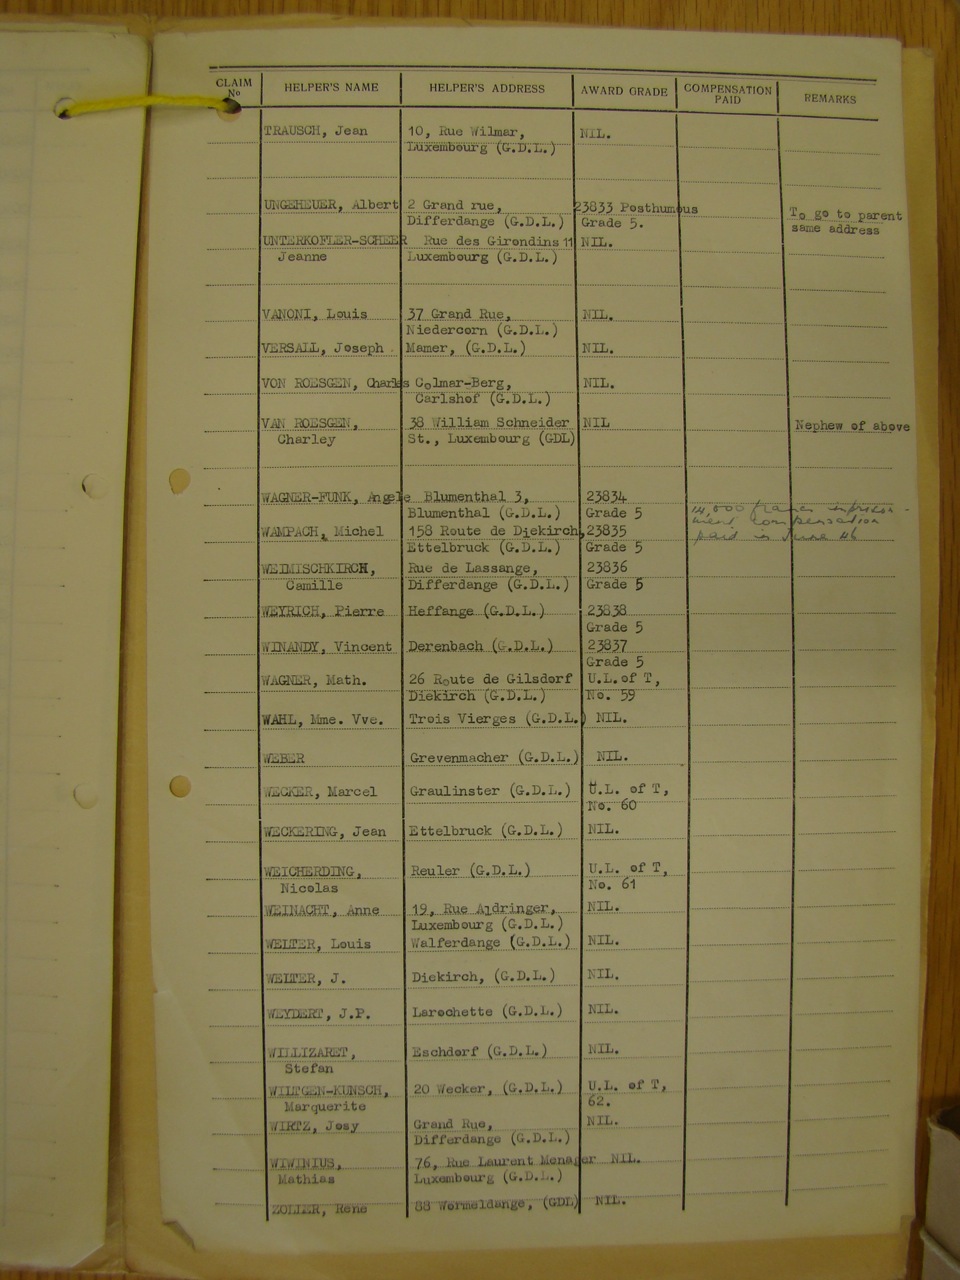 CLAIM No HELPER'S NAME HELPER'S ADDRESS AWARD GRADE COMPENSATION PAID REMARKS
TRAUSCH, Jean 10, Rue Wilmar, NIL.
Luxembourg (G.D.L.)
UNGEHEUER, Albert 2 Grand rue, 23833 Posthumous To go to parent
Differdange (G.D.L.) Grade 5. same address
UNTERKOFLER-SCHEER Rue des Girondins 11 NIL.
Jeanne Luxembourg (G.D.L.)
VANONI, Louis 37 Grand Rue, NIL.
Niedercorn (G.D.L.)
VERSALL, Joseph Mamer, (G.D.L.) NIL.
VON ROESGEN, Charles Colmar-Berg, NIL.
Carlshof (G.D.L.)
VAN ROESGEN, 38 William Schneider NIL Nephew of above
Charley St., Luxembourg (GDL)
WAGNER-FUNK, Angele Blumenthal 3, 23834
Blumenthal (G.D.L.) Grade 5 14,000 francs imprison-
WAMPACH, Michel 158 Route de Diekirch, 23835 ment compensation
Ettelbruck (G.D.L.) Grade 5 paid in June 46
WEIMISCHKIRCH, Rue de Lassange, 23836
Camille Differdange (G.D.L.) Grade 5
WEYRICH, Pierre Heffange (G.D.L.) 23838
Grade 5
WINANDY, Vincent Derenbach (G.D.L.) 23837
Grade 5
WAGNER, Math. 26 Route de Gilsdorf U.L. of T,
Diekirch (G.D.L.) No. 59
WAHL, Mme. Vve. Trois Vierges (G.D.L.) NIL.
WEBER Grevenmacher (G.D.L.) NIL.
WECKER, Marcel Graulinster (G.D.L.) U.L. of T,
No. 60
WECKERING, Jean Ettelbruck (G.D.L.) NIL.
WEICHERDING, Reuler (G.D.L.) U.L. of T,
Nicolas No. 61
WEINACHT, Anne 19, Rue Aldringer, NIL.
Luxembourg (G.D.L.)
WELTER, Louis Walferdange (G.D.L.) NIL.
WELTER, J. Diekirch, (G.D.L.) NIL.
WEYDERT, J.P. Larochette (G.D.L.) NIL.
WILLIZARET, Eschdorf (G.D.L.) NIL.
Stefan
WILTGEN-KUNSCH, 20 Wecker, (G.D.L.) U.L. of T,
Marguerite 62.
WIRTZ, Josy Grand Rue, NIL.
Differdange (G.D.L.)
WIWINIUS, 76, Rue Laurent Menager NIL.
Mathias Luxembourg (G.D.L.)
ZOLLER, Rene 88 Wormeldange, (GDL) NIL.